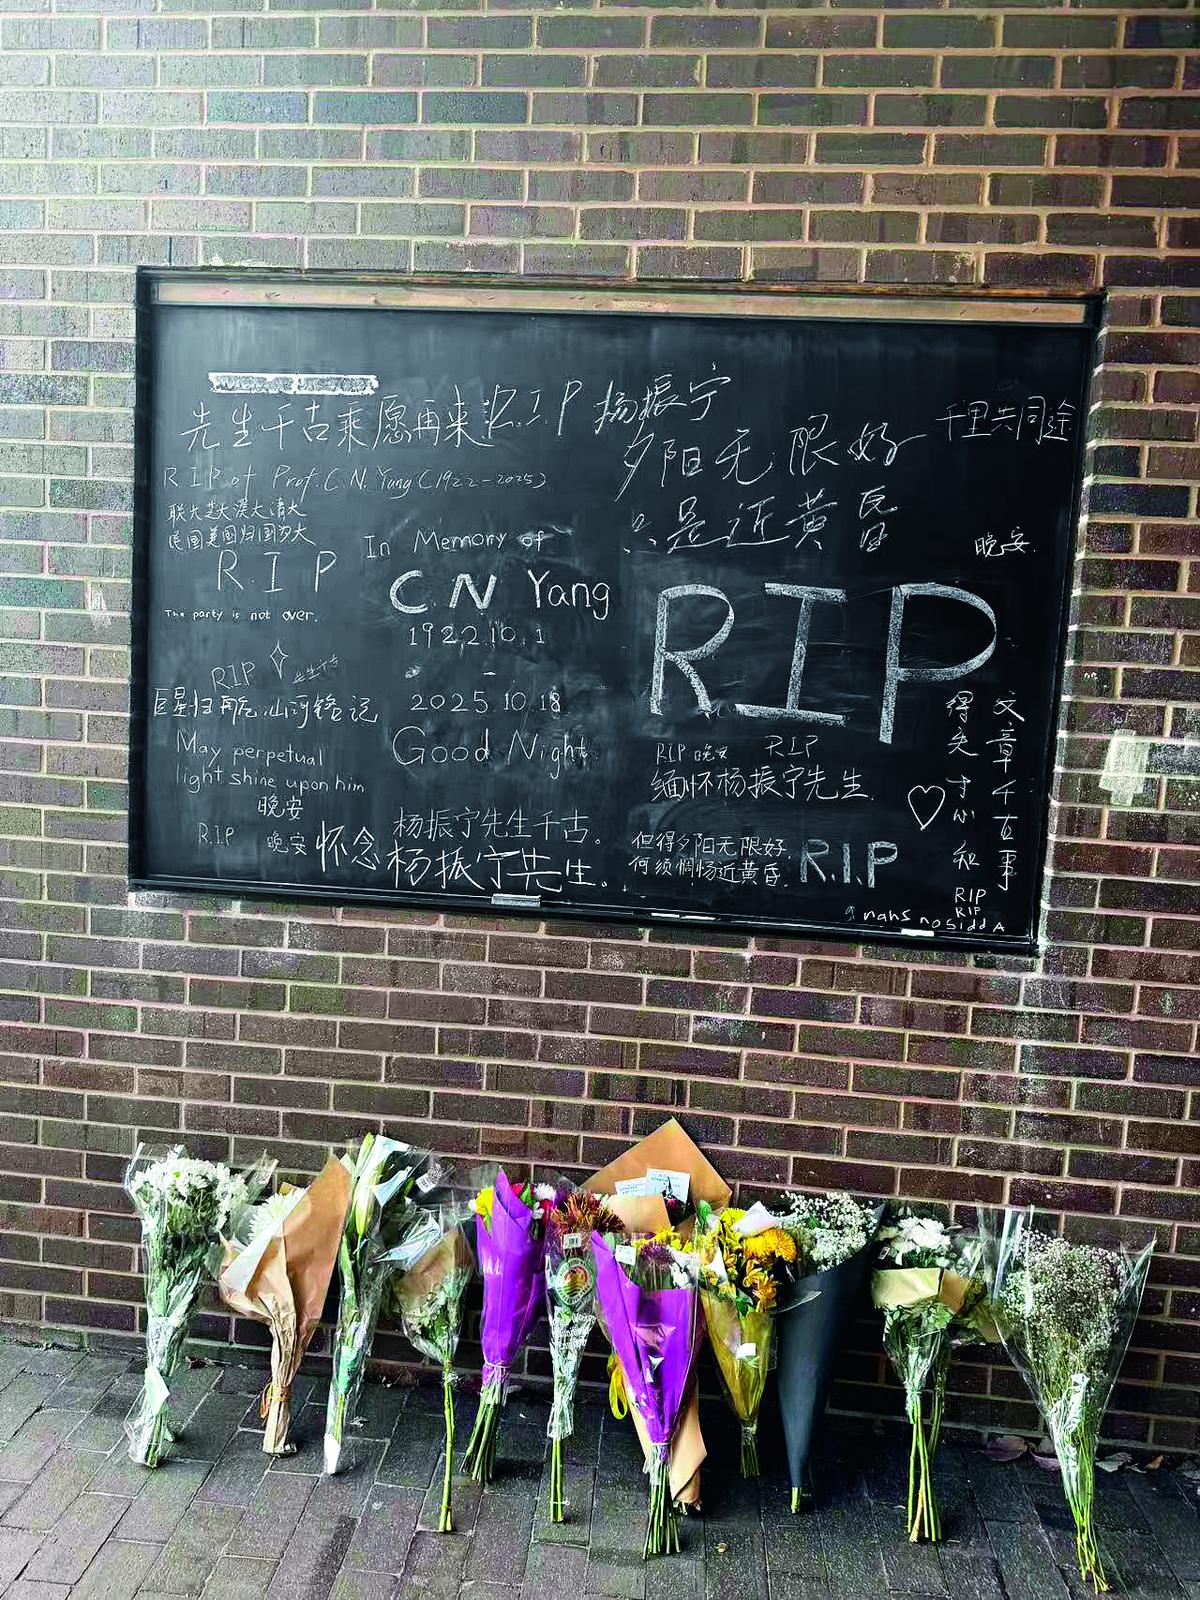 先生千古乘愿再来R.I.P 杨振宁
千里共同途
夕阳无限好
只是近黄昏
RIP of Prof. C. N. Yang (1922-2025)
联大芝大清大
美国归国
R.I.P
The party is not over.
In Memory of
C.N Yang
1922.10.1
-
2025.10.18
Good Night
晚安.
RIP
RIP
先生千古
巨星归 山河铭记
May perpetual
light shine upon him
晚安
R.I.P 晚安
怀念杨振宁先生。
杨振宁先生千古。
RIP 晚安 RIP
缅怀杨振宁先生.
但得夕阳无限好,
何须惆怅近黄昏.
R.I.P
文章千古事
得失寸心知
RIP
RIP
nahs nosiddA